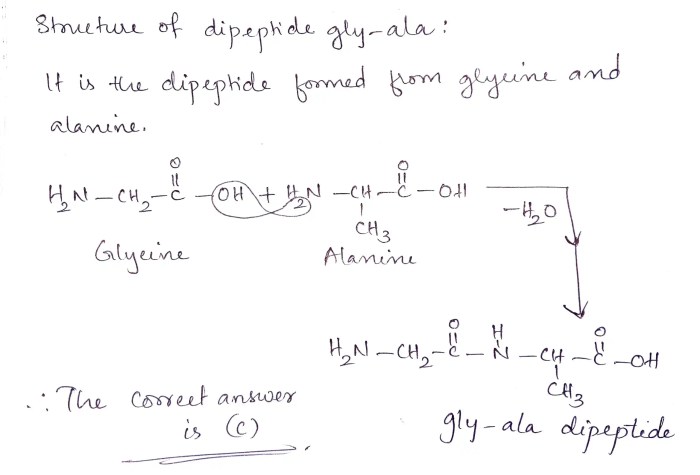 Structure of dipeptide gly-ala:
It is the dipeptide formed from glycine and
alanine.
O O
H₂N – CH₂ – C – OH + H₂N – CH – C – OH
– H₂O
CH₃
Glycine Alanine
O H O
H₂N – CH₂ – C – N – CH – C – OH
CH₃
∴ The correct answer
is (C)
gly-ala dipeptide